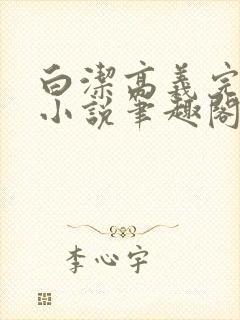 白潔高義完
小說筆趣閣
李心宇